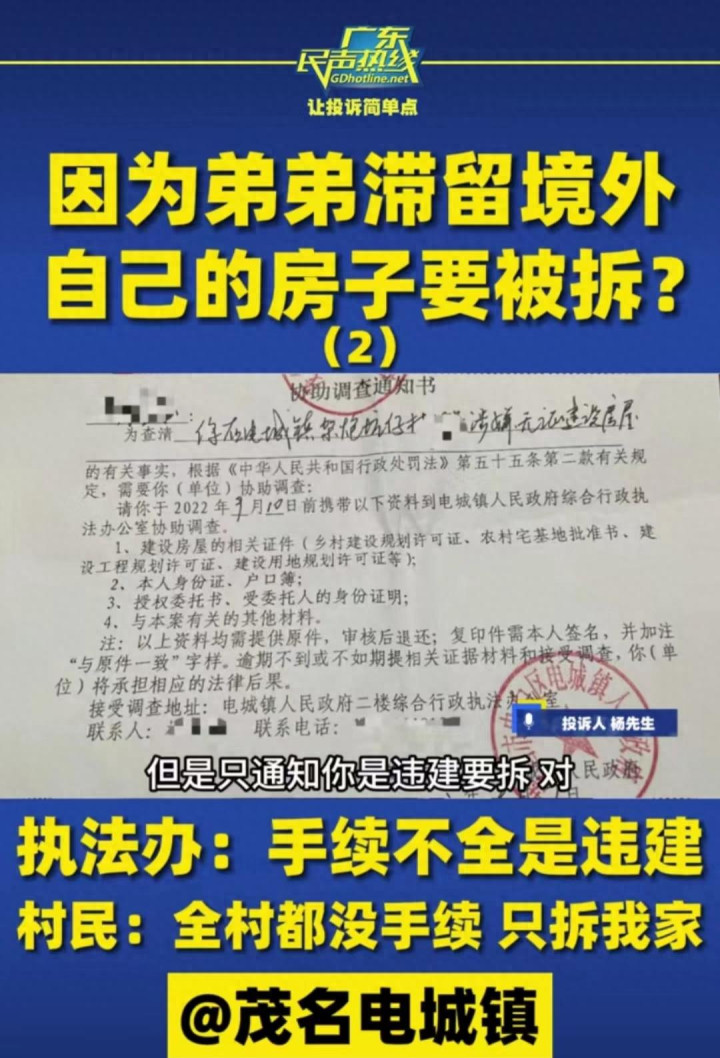 广东
民声热线
GDhotline.net
让投诉简单点
因为弟弟滞留境外
自己的房子要被拆？
（2）
协助调查通知书
为查清 你在电城镇 涉嫌无证建设房屋
的有关事实，根据《中华人民共和国行政处罚法》第五十五条第二款有关规
定，需要你（单位）协助调查：
请你于2022年9月10日前携带以下资料到电城镇人民政府综合行政执
法办公室协助调查。
1、建设房屋的相关证件（乡村建设规划许可证、农村宅基地批准书、建
设工程规划许可证、建设用地规划许可证等）；
2、本人身份证、户口簿；
3、授权委托书、受委托人的身份证明；
4、与本案有关的其他材料。
注：以上资料均需提供原件，审核后退还；复印件需本人签名，并加注
“与原件一致”字样。逾期不到或不如期提相关证据材料和接受调查，你（单
位）将承担相应的法律后果。
接受调查地址：电城镇人民政府二楼综合行政执法办公室
联系人： 联系电话：
区电城镇人
人民政府
投诉人 杨先生
但是只通知你是违建要拆 对
执法办：手续不全是违建
村民：全村都没手续 只拆我家
@茂名电城镇